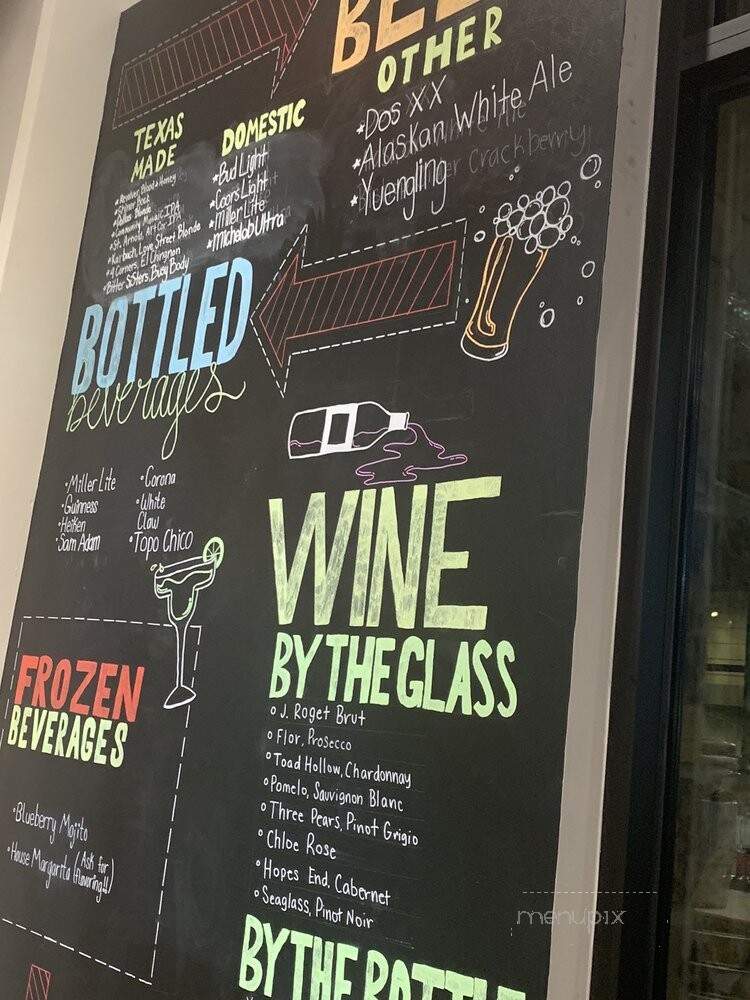 BEE
OTHER
*Dos XX
*Alaskan White Ale
*Yuengling
Crackberry
TEXAS
MADE
*Revolver, Blood & Honey
*Shiner Bock
*Dallas Blonde
*Community, Mosaic IPA
*St. Arnold, Art Car IPA
*Karbach, Love Street Blonde
*4 Corners, El Chingon
*Bitter Sisters, Busy Body
DOMESTIC
*Bud Light
*Coors Light
*Miller Lite
*Michelob Ultra
BOTTLED
beverages
•Miller Lite
•Guinness
•Heiken
•Sam Adam
•Corona
•White
Claw
•Topo Chico
WINE
BY THE GLASS
J. Roget Brut
Flor, Prosecco
Toad Hollow, Chardonnay
Pomelo, Sauvignon Blanc
Three Pears, Pinot Grigio
Chloe Rose
Hopes End, Cabernet
Seaglass, Pinot Noir
FROZEN
BEVERAGES
•Blueberry Mojito
•House Margarita (Ask for
flavoring!!)
BY THE BOTTLE
menupix